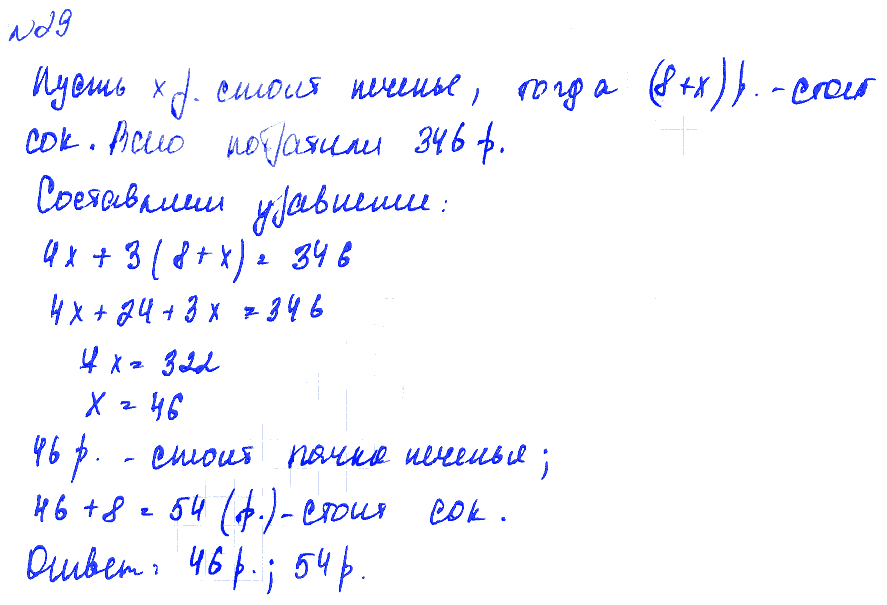 №29
Пусть x р. стоит печенье, тогда (8+x) р. - стоит
сок. Всего потратили 346 р.
Составляем уравнение:
4x + 3(8+x) = 346
4x + 24 + 3x = 346
7x = 322
x = 46
46 р. - стоит пачка печенья;
46 + 8 = 54 (р.) - стоит сок.
Ответ: 46 р.; 54 р.